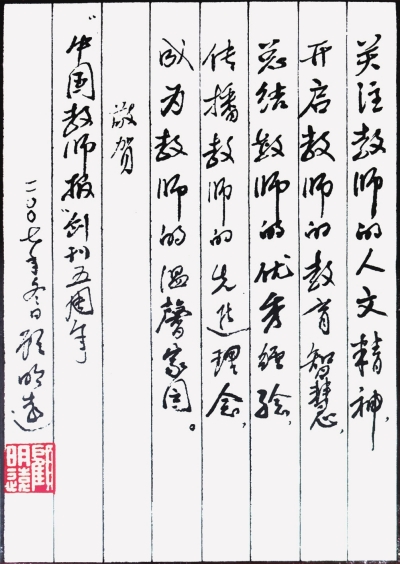 关注教师的人文精神,
开启教师的教育智慧,
总结教师的优秀经验,
传播教师的先进理念,
成为教师的温馨家园。
敬贺
“中国教师报”创刊五周年
二〇〇七年冬日 顾明远
顾明远